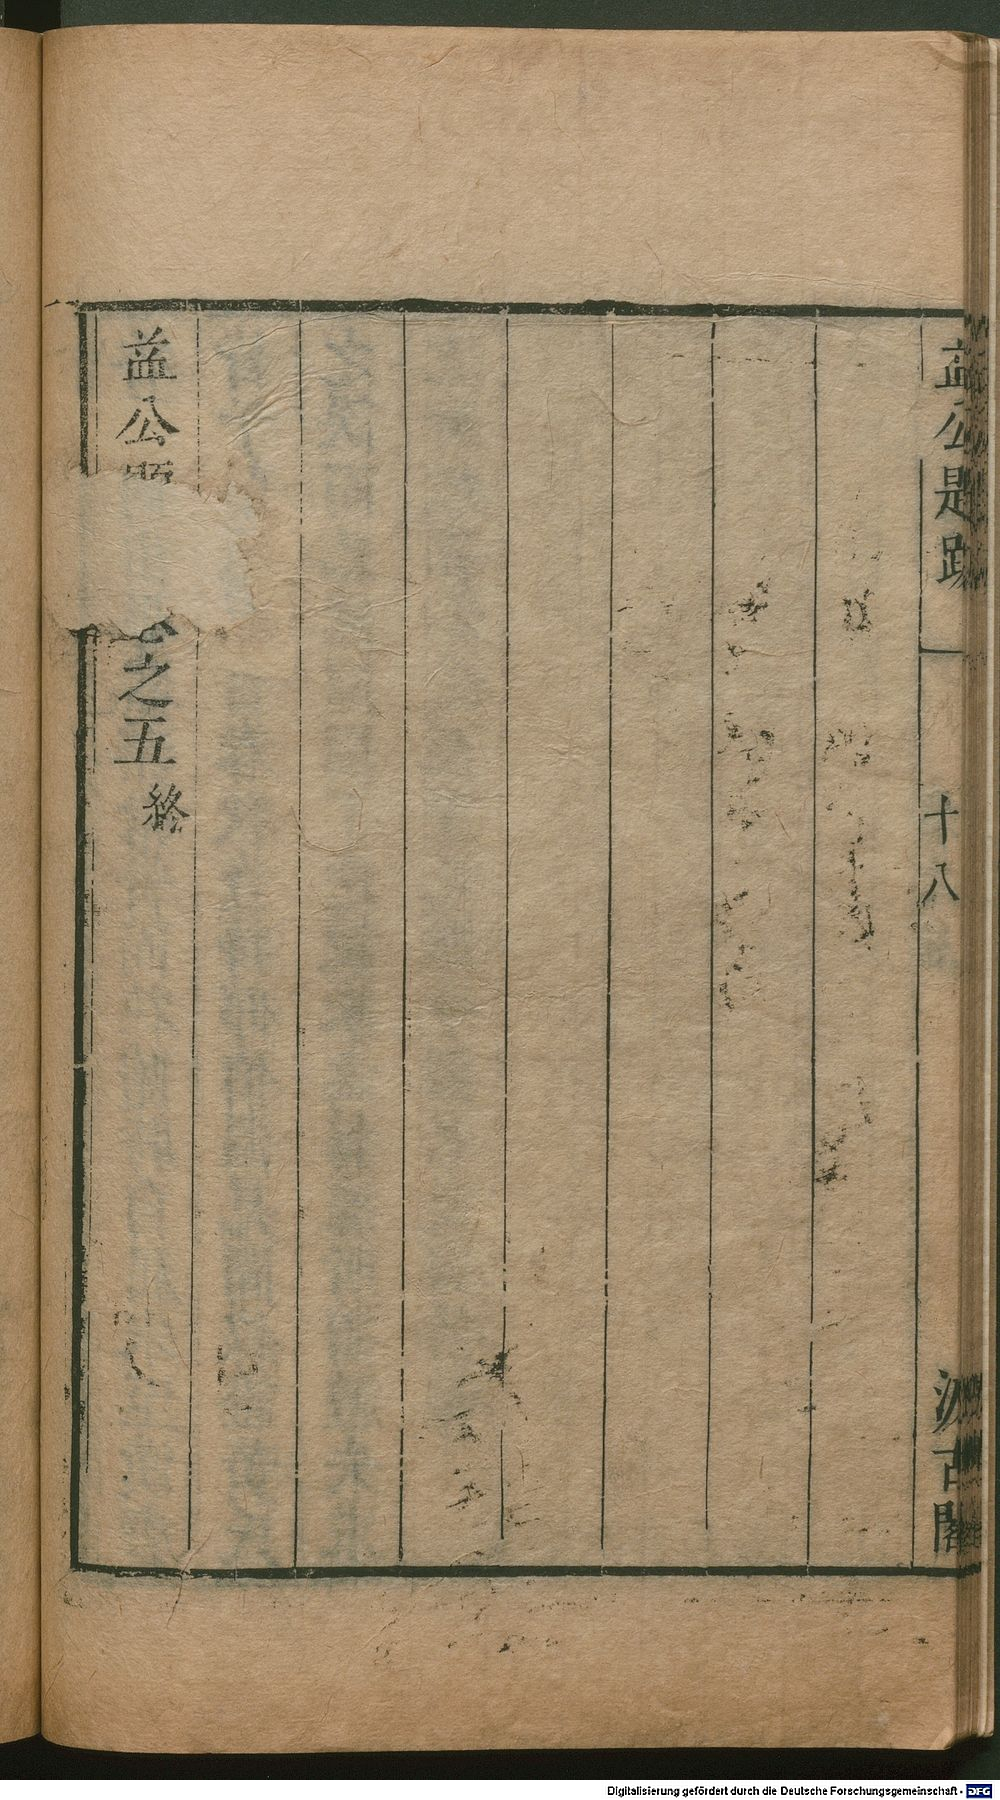 益公題跋
十八
汲古閣
益公題
之五終
Digitalisierung gefördert durch die Deutsche Forschungsgemeinschaft - DFG